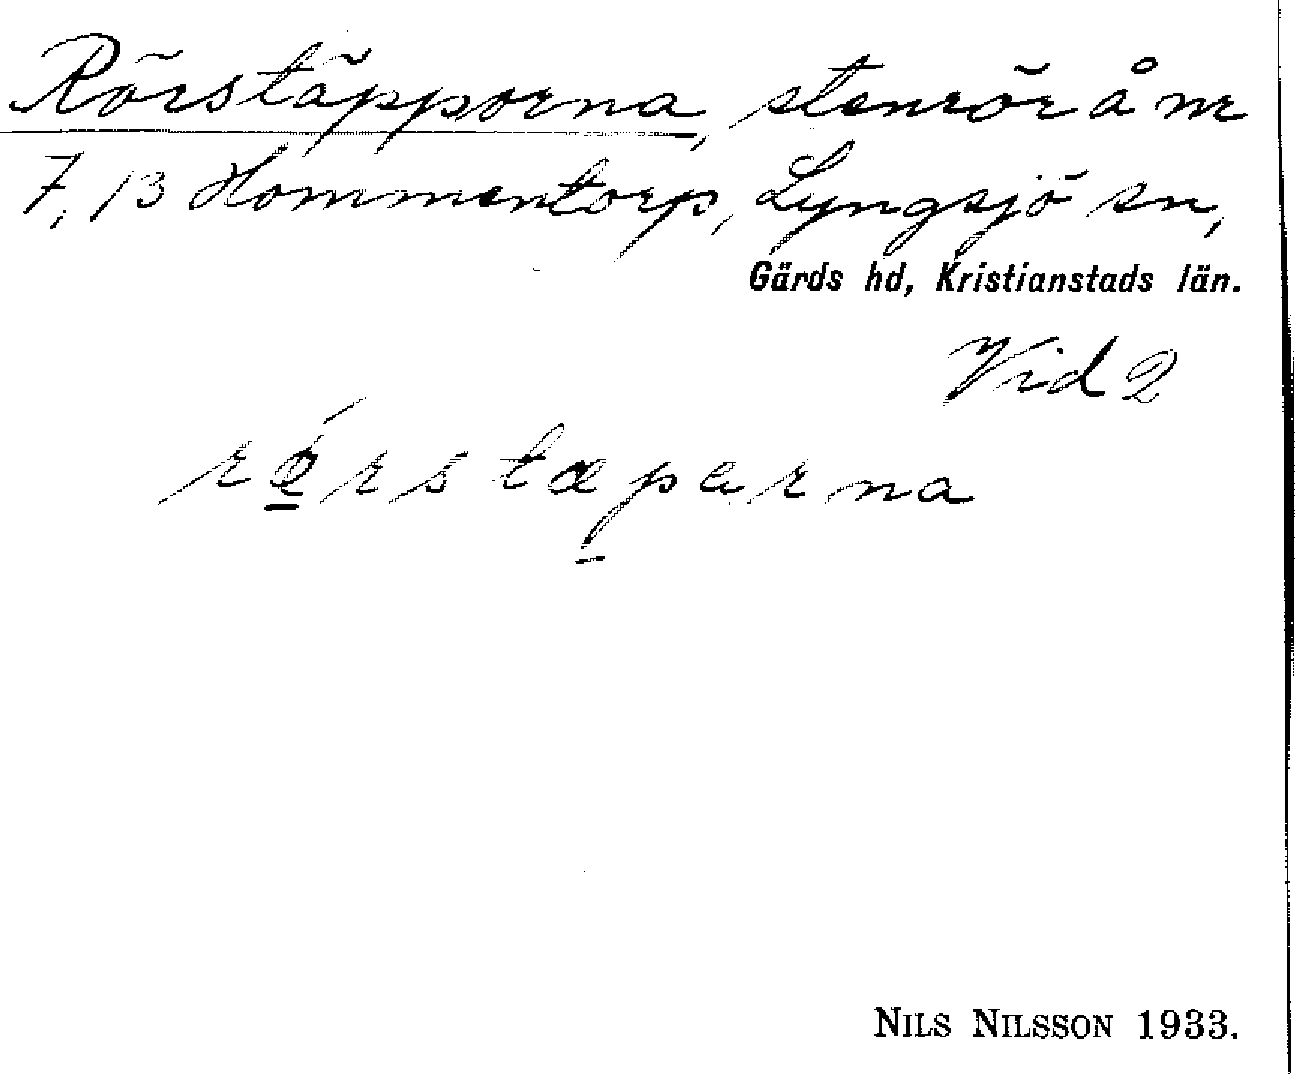 Rörstäpporna, stenrör å nr
7, 13 Hommentorp, Lyngsjö sn,
Gärds hd, Kristianstads län.
Vid 2
rǿ̠rstæp̠arna
NILS NILSSON 1933.